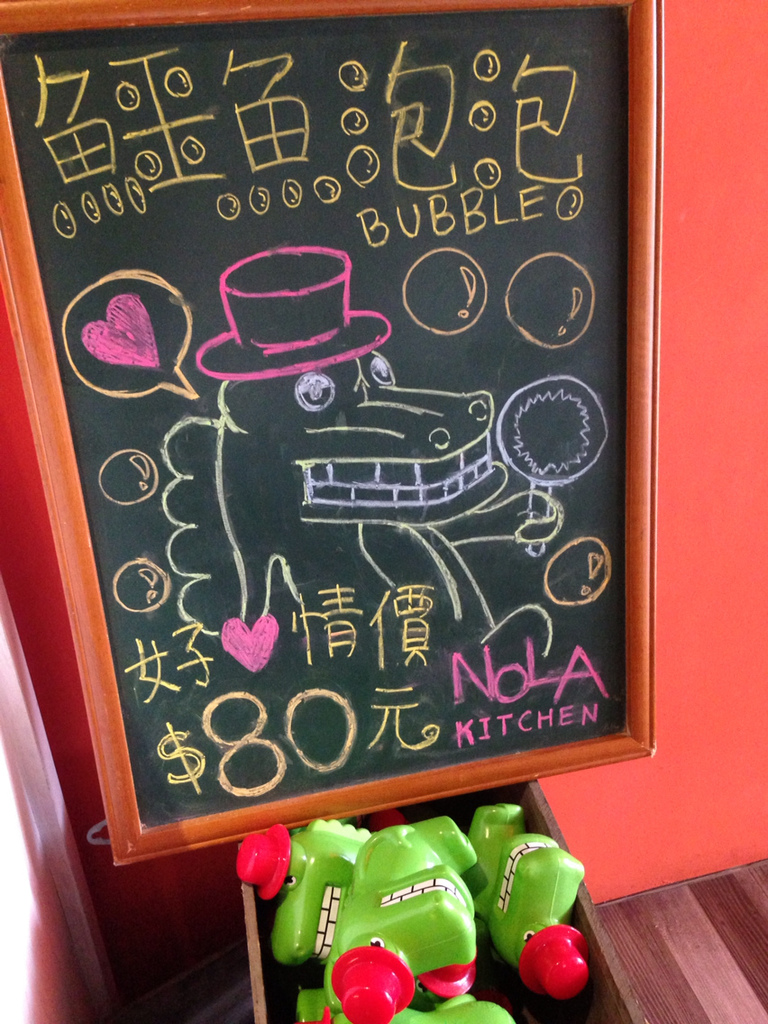 鱷魚泡泡
BUBBLE
好心情價
$80元
NOLA
KITCHEN